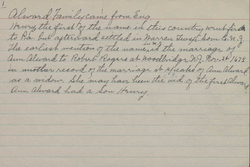 1
Alward Family came from Eng
Henry the first of the name in this country went first
to Pa. but afterward settled in Warren Twsp. Som. Co. N.J.
The earliest mention of the name is of the marriage of
Ann Alward to Robert Rogers at Woodbridge N.J. Nov. 25th 1678
in another record of the marriage it speaks of Ann Alward
as a widow. She may have been the wid. of the first Alward
Ann Alward had a son Henry